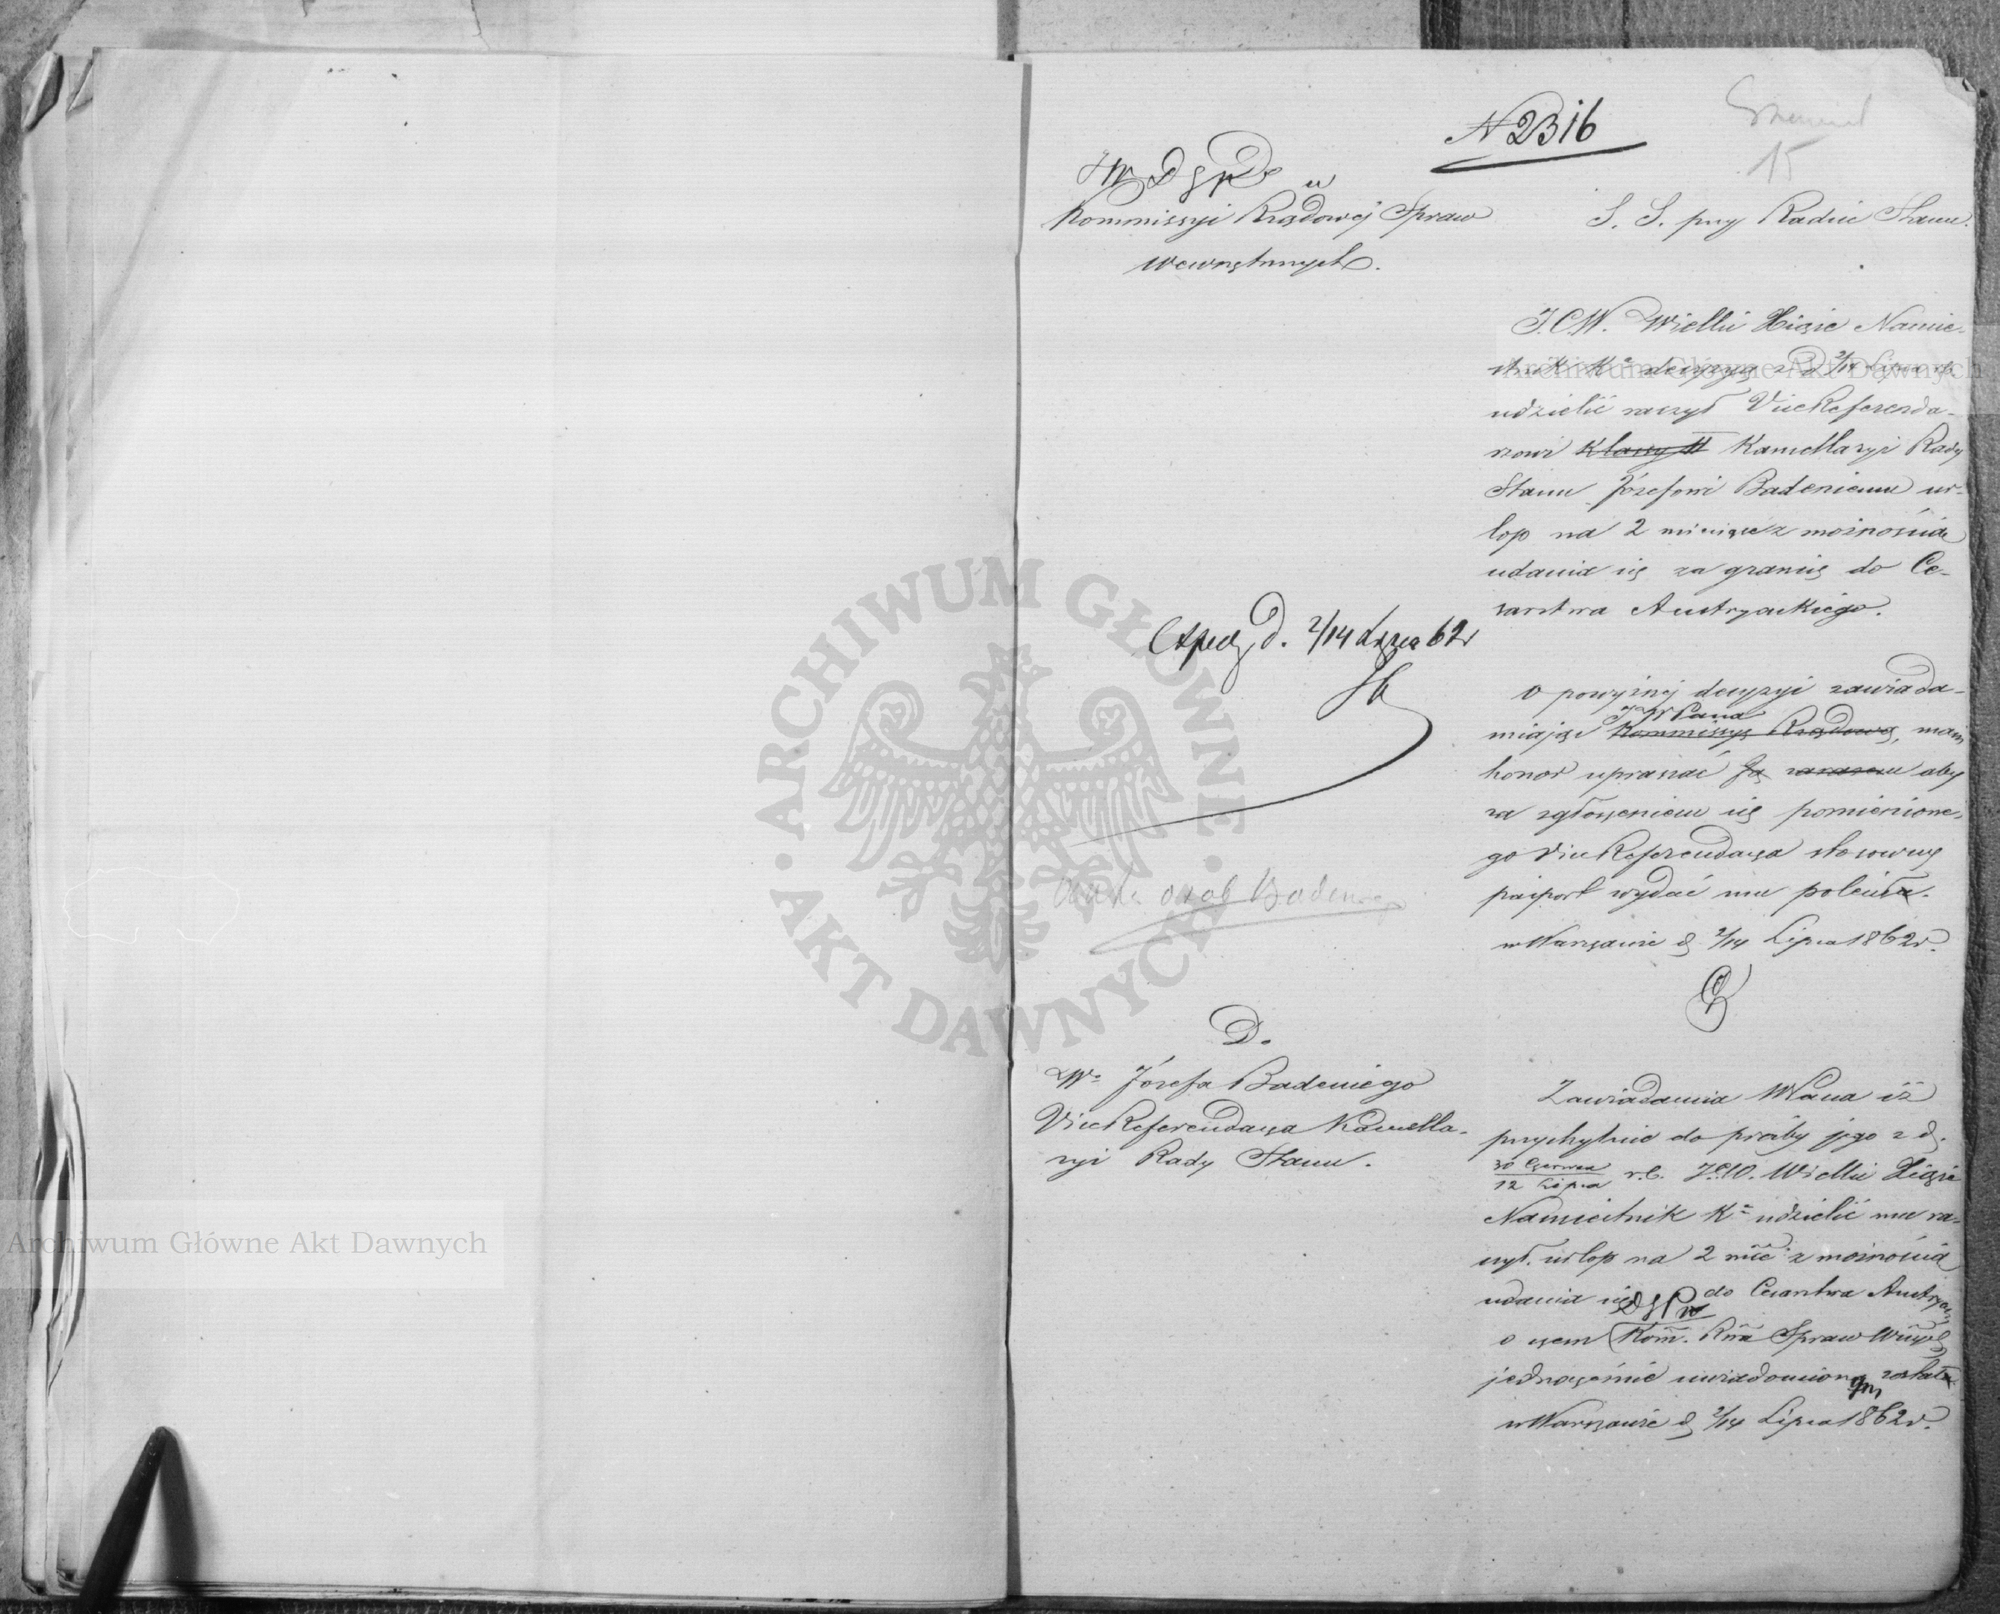 N 2316
15
Kommissyi Rządowej Spraw
Wewnętrznych.
S. S. przy Radzie Stanu.
J.C.W. Wielki Xiąże Namie-
stnik Kr decyzyą z d 2/14 Lipca rb
udzielić raczył ViceReferenda-
rzowi Klassy II Kancellaryi Rady
Stanu Józefowi Badeniemu ur-
lop na 2 miesiące z możnością
udania się za granicę do Ce-
sarstwa Austryackiego.
Exped. d. 2/14 Lipca 62r
O powyższej decyzyi zawiada-
JW Pana
miając Kommissyę Rządową, mam
honor upraszać Ją zarazem aby
za zgłoszeniem się pomienione-
go ViceReferendarza stosowny
paszport wydać mu poleciła.
w Warszawie d 2/14 Lipca 1862r.
Akta osob Badeniego
D.
W Józefa Badeniego
ViceReferendarza Kancella-
ryi Rady Stanu.
Zawiadamia WPana iż
przychylnie do prośby jego z d.
30 Czerwca
12 Lipca r.b. J.C.W. Wielki Xiąże
Namiestnik Kr udzielić mu ra-
czył urlop na 2 mce z możnością
udania się do Cesarstwa Austryac,
DGPw
o czem Kom. Rna Spraw Wnych
jednocześnie uwiadomionym została
w Warszawie d 2/14 Lipca 1862r.
ARCHIWUM GŁÓWNE AKT DAWNYCH
Archiwum Główne Akt Dawnych
Archiwum Główne Akt Dawnych